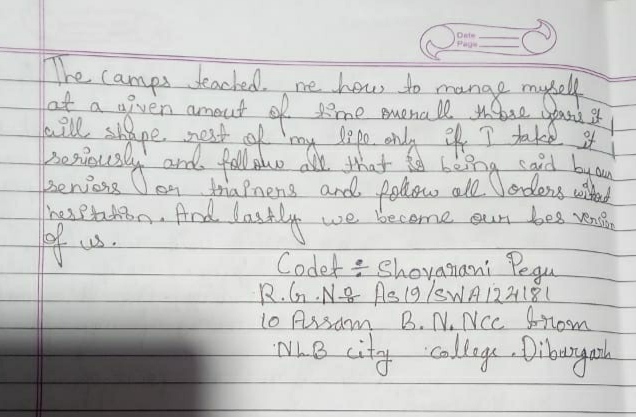 Date
Page
The camps teached me how to mange myself
at a given amout of time overall these years it
will shape rest of my life only if I take it
seriously and follow all that is being said by our
seniors or trainers and follow all orders without
hesitation. And lastly we become our bes version
of us.
Codet ÷ Shovarani Pegu
R.G.No AS19/SWA124181
10 Assam B.N. NCC from
NLB city college. Diburgarh